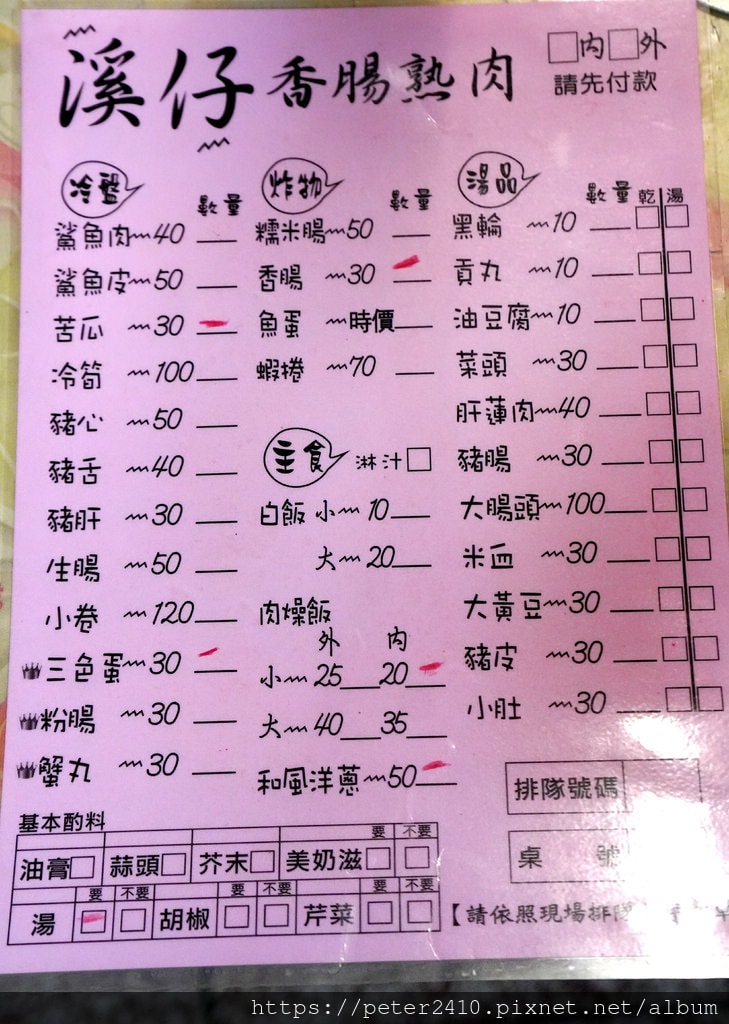 溪仔 香腸熟肉
□內□外
請先付款
冷盤 數量
鯊魚肉~40
鯊魚皮~50
苦瓜~30
冷筍~100
豬心~50
豬舌~40
豬肝~30
生腸~50
小卷~120
三色蛋~30
粉腸~30
蟹丸~30
炸物 數量
糯米腸~50
香腸~30
魚蛋~時價
蝦捲~70
主食 淋汁□
白飯 小~10
大~20
肉燥飯
外 內
小~25 20
大~40 35
和風洋蔥~50
湯品 數量 乾 湯
黑輪~10
貢丸~10
油豆腐~10
菜頭~30
肝蓮肉~40
豬腸~30
大腸頭~100
米血~30
大黃豆~30
豬皮~30
小肚~30
排隊號碼
桌號
基本酌料
要 不要
油膏□ 蒜頭□ 芥末□ 美奶滋□ □
要 不要 要 不要 要 不要
湯□ □ 胡椒□ □ 芹菜□ □
【請依照現場排隊
https://peter2410.pixnet.net/album